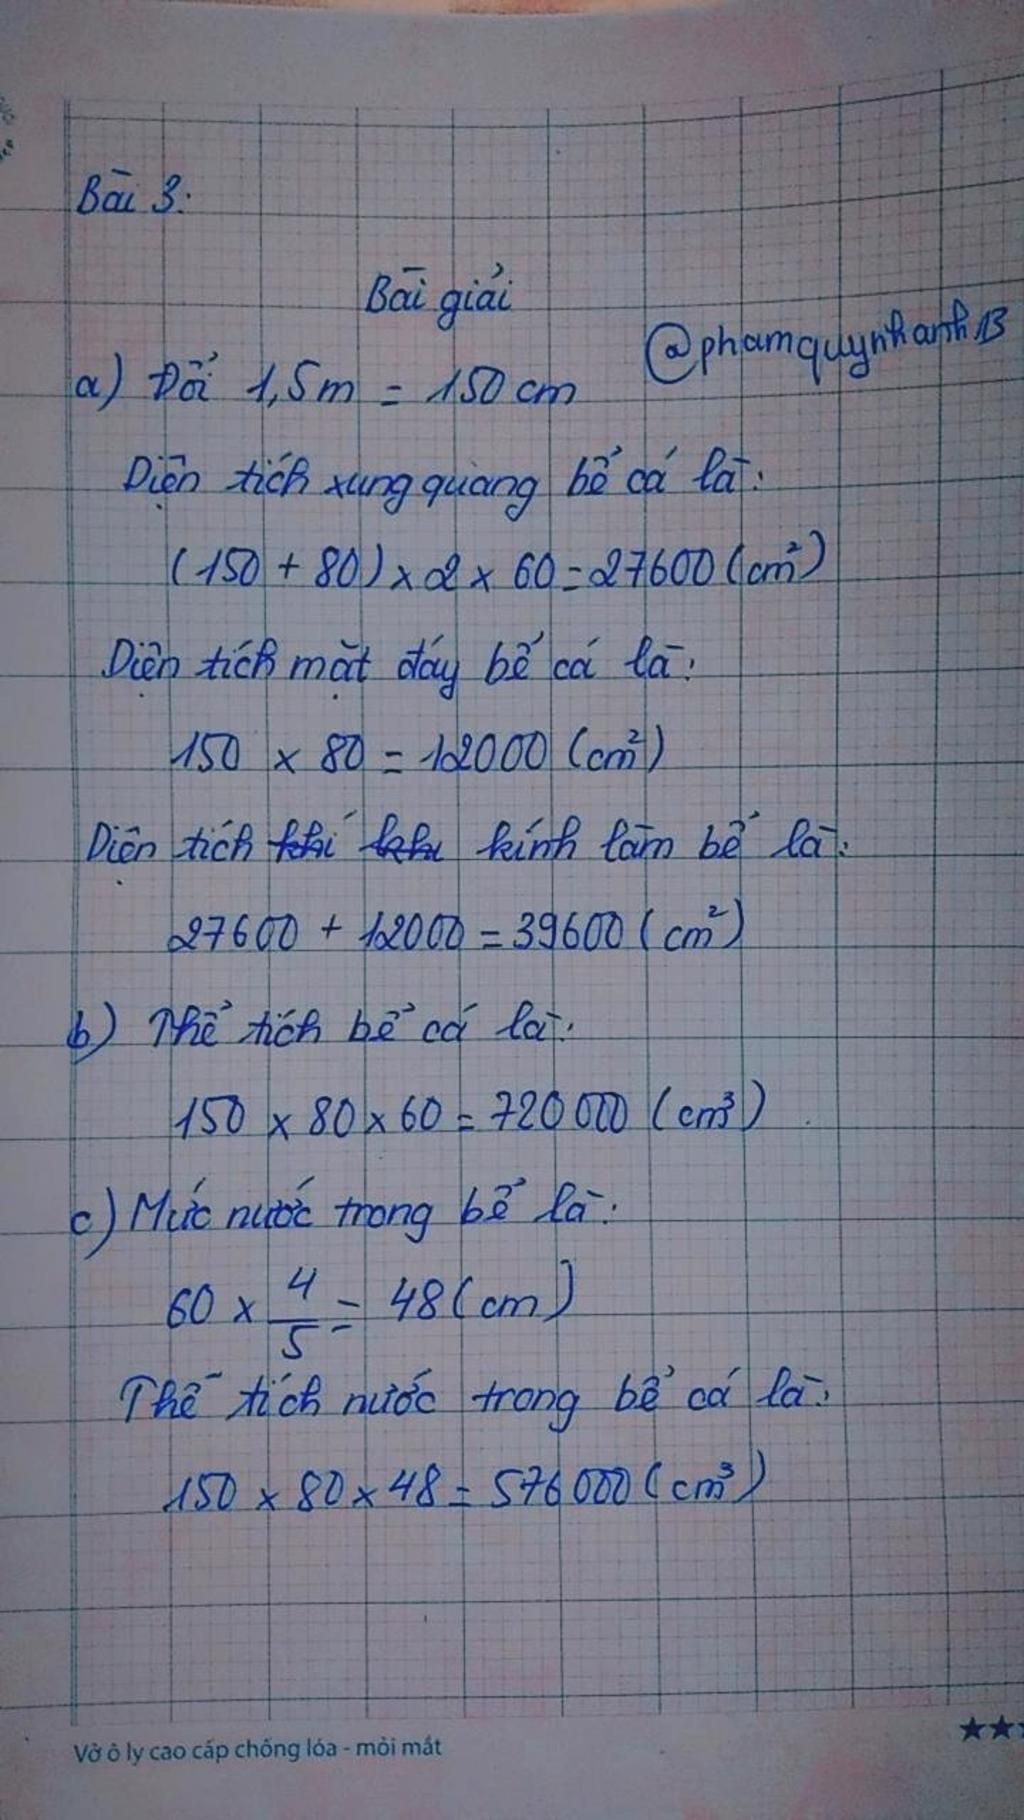 Bài 3:
Bài giải
@phamquynhanh13
a) Đổi 1,5m = 150 cm
Diện tích xung quang bể cá là:
(150 + 80) x 2 x 60 = 27600 (cm²)
Diện tích mặt đáy bể cá là:
150 x 80 = 12000 (cm²)
Diện tích kính làm bể là:
27600 + 12000 = 39600 (cm²)
b) Thể tích bể cá là:
150 x 80 x 60 = 720 000 (cm³)
c) Mức nước trong bể là:
60 x 4/5 = 48 (cm)
Thể tích nước trong bể cá là:
150 x 80 x 48 = 576 000 (cm³)
Vở ô ly cao cấp chống lóa - mỏi mắt